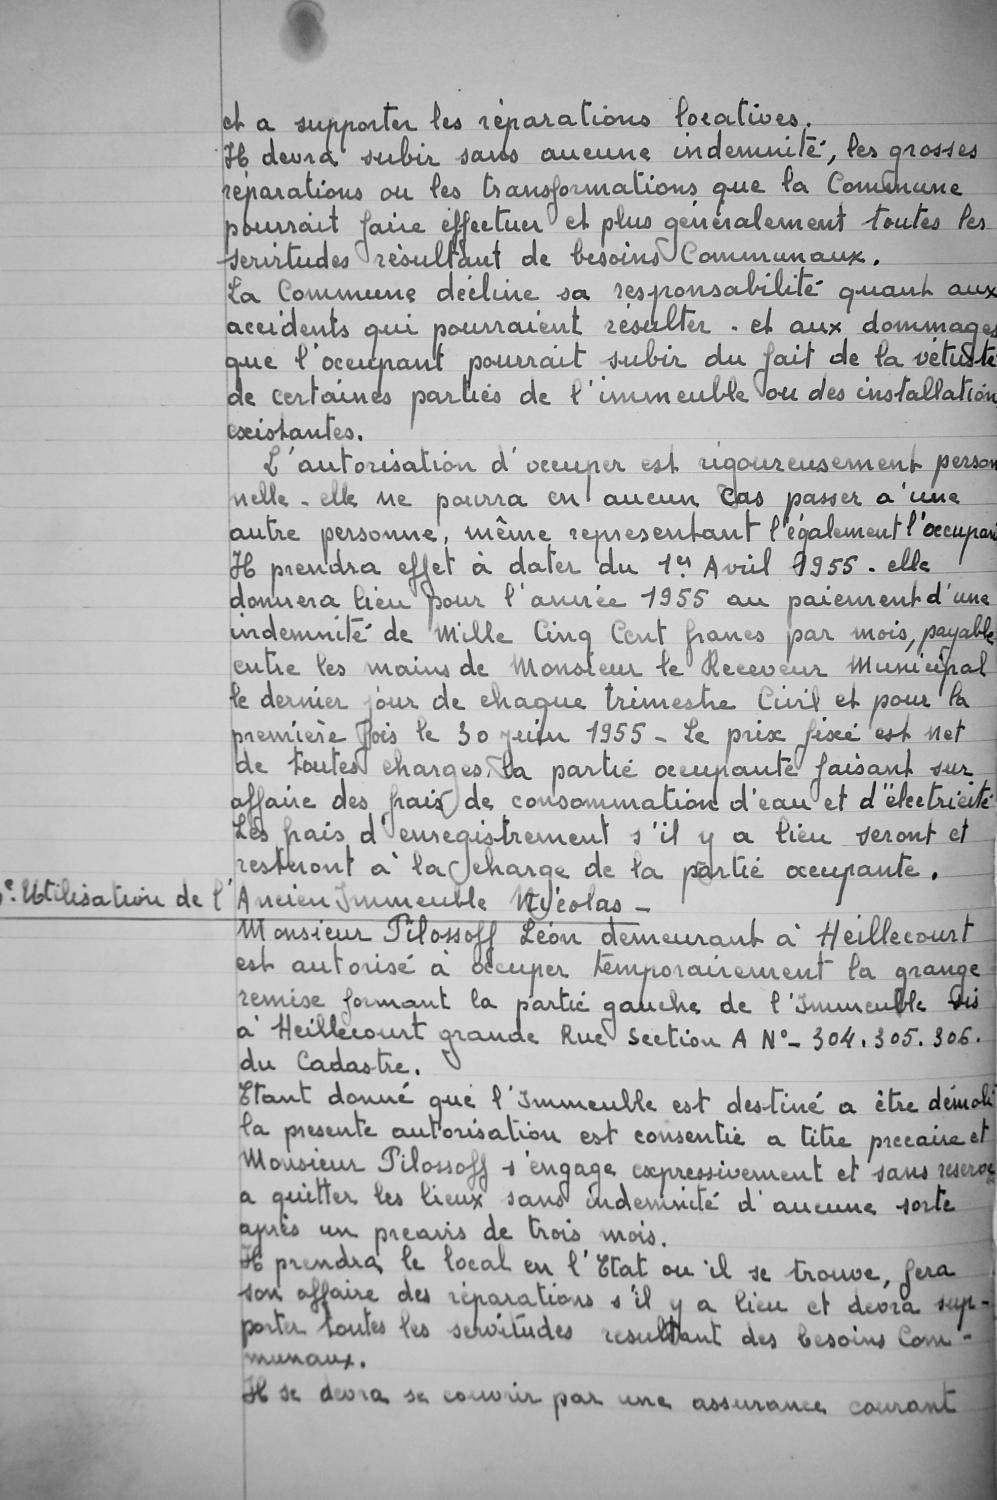 et a supporter les réparations locatives.
Il devra subir sans aucune indemnité, les grosses
réparations ou les transformations que la Commune
pourrait faire éffectuer et plus généralement toutes les
servitudes résultant de besoins Communaux.
La Commune décline sa responsabilité quant aux
accidents qui pourraient résulter. et aux dommages
que l'occupant pourrait subir du fait de la vétusté
de certaines parties de l'immeuble ou des installation
existantes.
L'autorisation d'occuper est rigoureusement person
nelle - elle ne pourra en aucun Cas passer a'une
autre personne, même representant l'également l'occupant
Il prendra effet à dater du 1er Avril 1955 - elle
donnera lieu pour l'année 1955 au paiement d'une
indemnité de Mille Cinq Cent francs par mois, payable
entre les mains de Monsieur le Receveur Municipal
le dernier jour de chaque trimestre Civil et pour la
première fois le 30 juin 1955 - Le prix fixé est net
de toutes charges. La partie occupante faisant sur
affaire des frais de consommation d'eau et d'électricité
Les frais d'enregistrement s'il y a lieu seront et
resteront à la charge de la partie occupante.
Utilisation de l'Ancien Immeuble Nicolas -
Monsieur Pilossoff Léon demeurant à Heillecourt
est autorisé à occuper temporairement la grange
remise formant la partie gauche de l'Immeuble sis
à Heillecourt grande Rue Section A N° - 304. 305. 306.
du Cadastre.
Etant donné que l'Immeuble est destiné a être démoli
la presente autorisation est consentie a titre precaire et
Monsieur Pilossoff s'engage expressivement et sans reserve
a quitter les lieux sans indemnité d'aucune sorte
après un preavis de trois mois.
Il prendra le local en l'Etat ou il se trouve, fera
son affaire des réparations s'il y a lieu et devra sup-
porter toutes les servitudes resultant des besoins Com-
munaux.
Il se devra se couvrir par une assurance courant